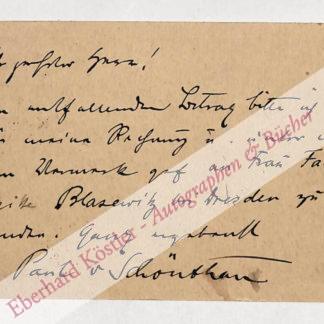 geehrter Herr!
entfallenden Betrag bitte ich
meine Rechnung u.
Vermerk gef. an Frau
Blasewitz Dresden zu
Ganz ergebenst
Paul v Schönthan
Eberhard Köstler - Autographen & Bücher